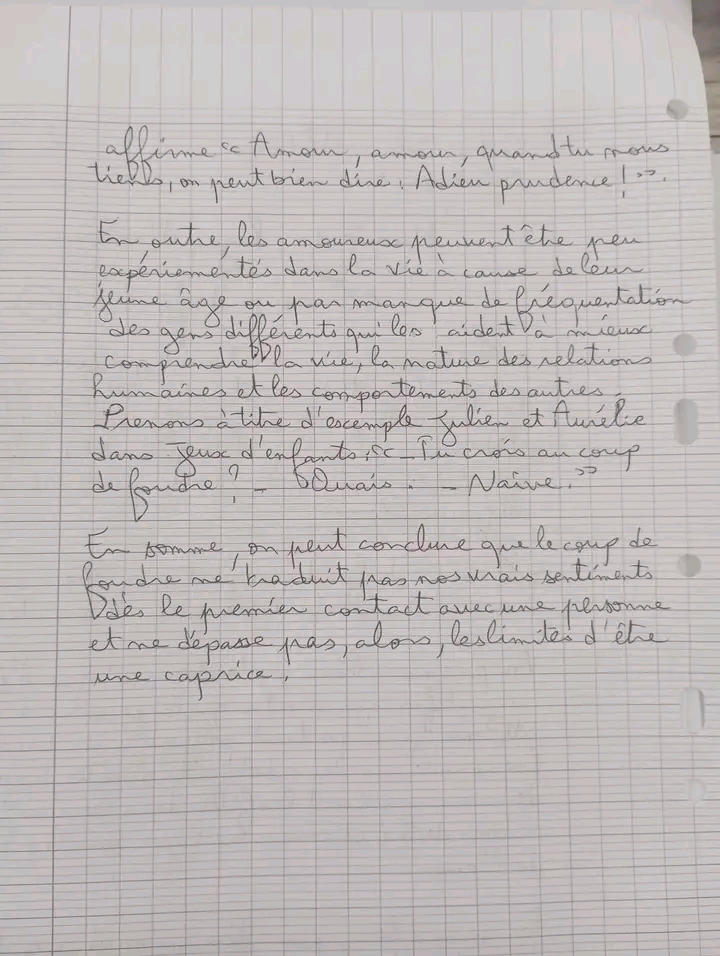 affirme « Amour, amour, quand tu nous
tiens, on peut bien dire : Adieu prudence ! ».
En outre, les amoureux peuvent être peu
expériementés dans la vie à cause de leur
jeune âge ou par manque de fréquentation
des gens différents qui les aident à mieux
comprendre la vie, la nature des relations
humaines et les comportements des autres.
Prenons à titre d'exemple Julien et Aurélie
dans Jeux d'enfants : « - Tu crois au coup
de foudre ? - Ouais. - Naïve. »
En somme, on peut conclure que le coup de
foudre ne traduit pas nos vrais sentiments
dès le premier contact avec une personne
et ne dépasse pas, alors, les limites d'être
une caprice.